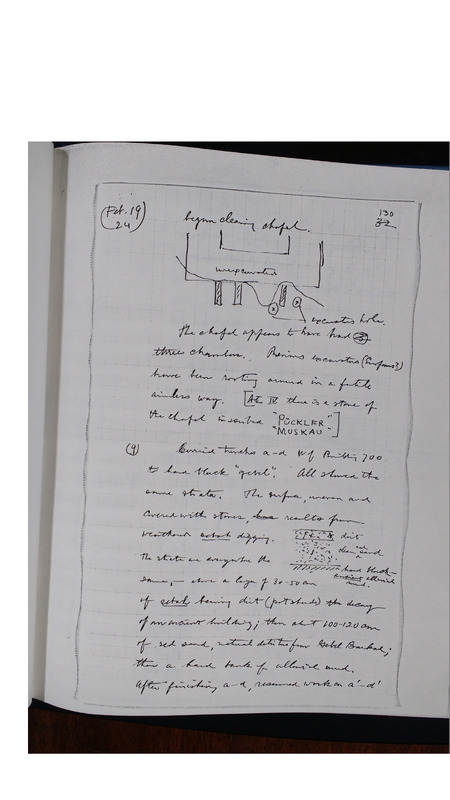 Feb. 19
24
130
begun clearing chapel.
unexcavated
excavators hole.
The chapel appears to have had
three chambers. Previous excavators (Lepsius?)
have been rooting around in a futile
aimless way. [At IV there is a stone of
the chapel inscribed "PÜCKLER"
"MUSKAU"]
(9) Carried trenches a-d W of Building 700
to hard black "gebel". All showed the
same strata. The surface, uneven and
covered with stones, results from
sebakh digging. dirt
The strata are everywhere the clean sand
same, - above a layer of 30-50 cm hard black alluvial mud.
of sebakh bearing dirt (potsherds) the decay
of an ancient building; then about 100-120 cm
of red sand, natural detritus from Gebel Barkal;
then a hard bank of alluvial mud.
After finishing a-d, resumed work on a'-d'